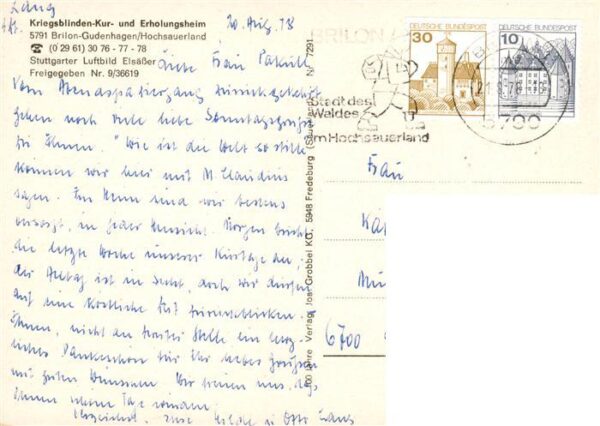 Lang
Kriegsblinden-Kur- und Erholungsheim
5791 Brilon-Gudenhagen/Hochsauerland
☎ (0 29 61) 30 76 - 77 - 78
Stuttgarter Luftbild Elsäßer
Freigegeben Nr. 9/36619
20. Aug. 78
Liebe Frau
Vom Abendspaziergang zurückgekehrt
gehen noch viele liebe Sonntagsgrüße
Ihnen. "Wie ist die Welt so stille"
können wir hier mit M. Claudius
sagen. Im Heim sind wir bestens
versorgt, in jeder Hinsicht. Morgen bricht
die letzte Woche unserer Kurtage an,
der Alltag ist in Sicht, doch wir dürfen
auf eine köstliche Zeit zurückblicken.
Ihnen, nicht an letzter Stelle ein herz-
liches Dankeschön für Ihr liebes
mit guten Wünschen. Wir freuen uns, daß
Ihnen
Herzlichst, Ihre Hilde u. Otto Lang
100 Jahre Verlag Jos. Grobbel KG, 5948 Fredeburg (Sauerland) Nr. 7291
BRILON
Stadt des
Waldes
im Hochsauerland
DEUTSCHE BUNDESPOST
30
DEUTSCHE BUNDESPOST
10
5790
Frau
Ka
Mü
6700